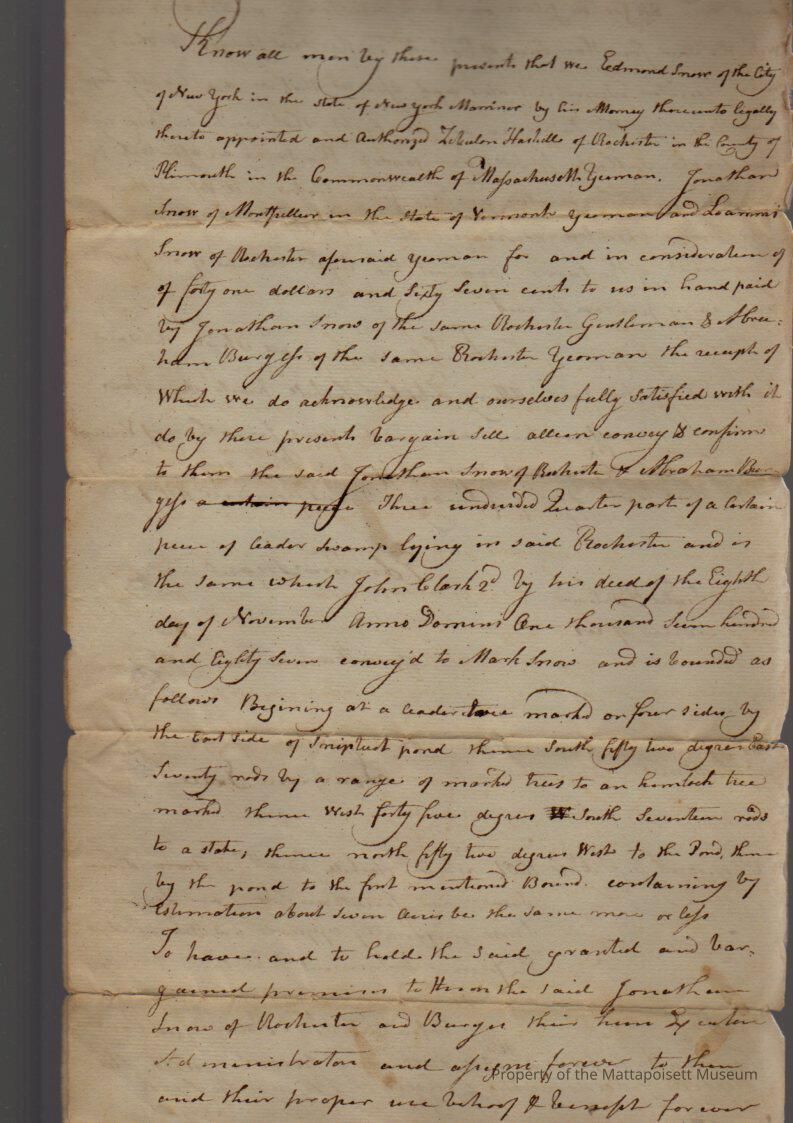 Know all men by these presents that we Edmond Snow of the City
of New York in the state of New york Marriner by his Attorney thereunto legally
thereto appointed and Authorized Zebulon Haskell of Rochester in the County of
Plimouth in the Commonwealth of Massachusetts Yeoman. Jonathan
Snow of Montpellier in the state of Vermont yeoman and Loammi
Snow of Rochester aforesaid Yeoman for and in consideration of
of forty one dollars and Sixty Seven cents to us in hand paid
by Jonathan Snow of the same Rochester Gentleman & Abra=
ham Burgess of the same Rochester Yeoman the receipt of
Which we do acknowledge and ourselves fully satisfied with it
do by these presents bargain sell alien convey & confirm
to them the said Jonathan Snow of Rochester & Abraham Bur
gess a certain piece Three undivided Quarter part of a Certain
piece of Ceader Swamp lying in said Rochester and is
the same which John Clark 2d by his deed of the Eighth
day of November Anno Domini One thousand Seven hundred
and Eighty Seven convey'd to Mark Snow and is bounded as
follows Begining at a Ceader tree markd on four sides by
the East side of Sniptuct pond thence South fifty two degrees East
Seventy rods by a range of markd trees to an hemlock tree
markd thence West forty five degrees South Seventeen rods
to a stake, thence north fifty two degrees West to the Pond, thence
by the pond to the first mentioned Bound. containing by
Estimation about Seven Acres be the same more or less
To have and to holde the said granted and bar-
gained premises to them the said Jonathan
Snow of Rochester and Burges their heirs Executors
Administrators and assigns forever to them
and their proper use behoof & benefit forever
Property of the Mattapoisett Museum